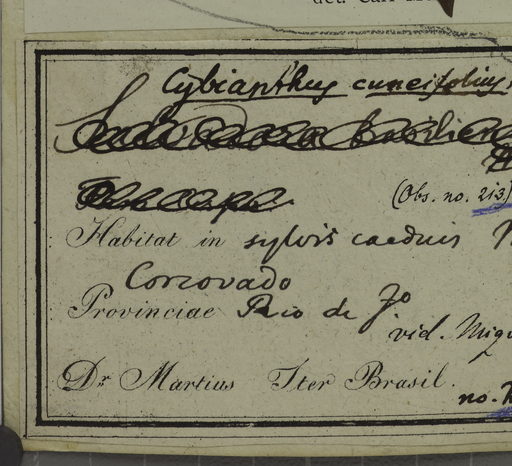 Cybianthus cuneifolius
(Obs. no. 213)
Habitat in sylvis caeduis
Corcovado
Provinciae Rio de Jo
vid. Miqu
Dr Martius Iter Brasil.
no.